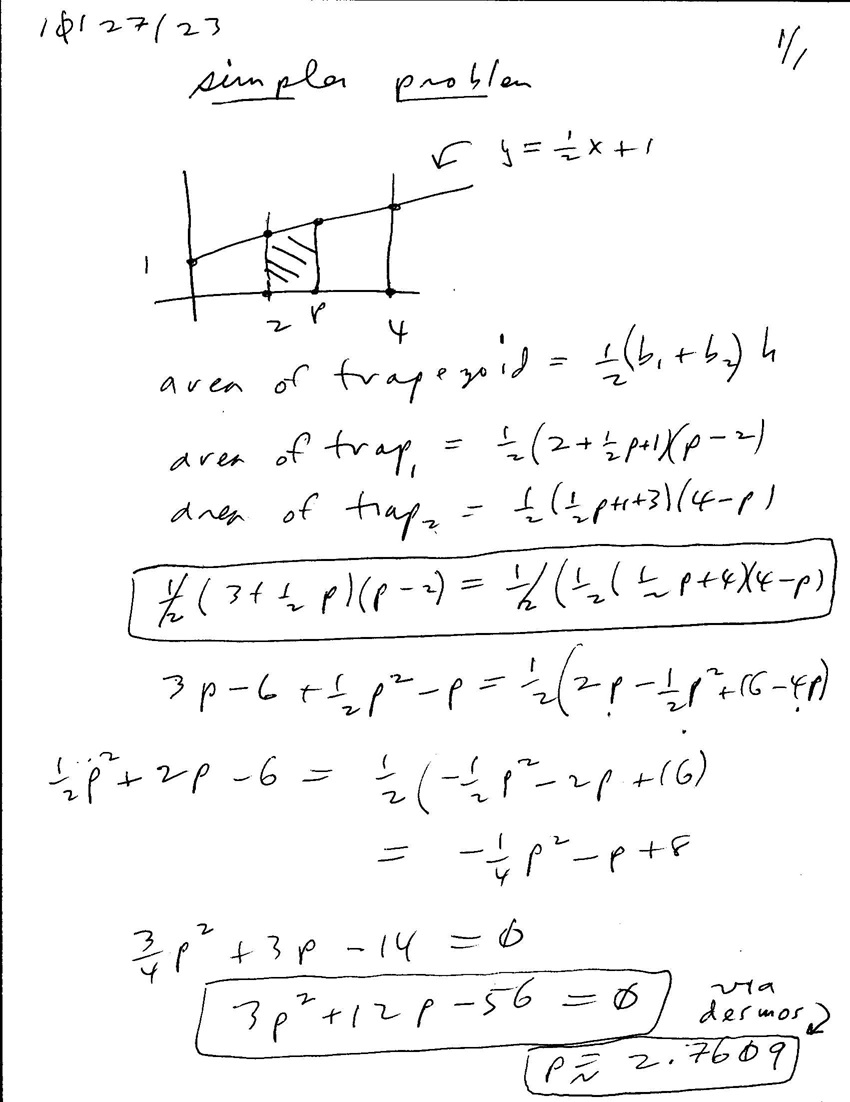 10/27/23
1/1
simpler problem
y = ½x + 1
1
2 p 4
area of trapezoid = ½(b₁ + b₂) h
area of trap₁ = ½(2 + ½p+1)(p − 2)
area of trap₂ = ½(½p+1+3)(4 − p)
½(3 + ½p)(p − 2) = ½(½(½p + 4)(4 − p)
3p − 6 + ½p² − p = ½(2p − ½p² + 16 − 4p)
½p² + 2p − 6 = ½(−½p² − 2p + 16)
= −¼p² − p + 8
¾p² + 3p − 14 = 0
3p² + 12p − 56 = 0
via
desmos
p ≈ 2.7609